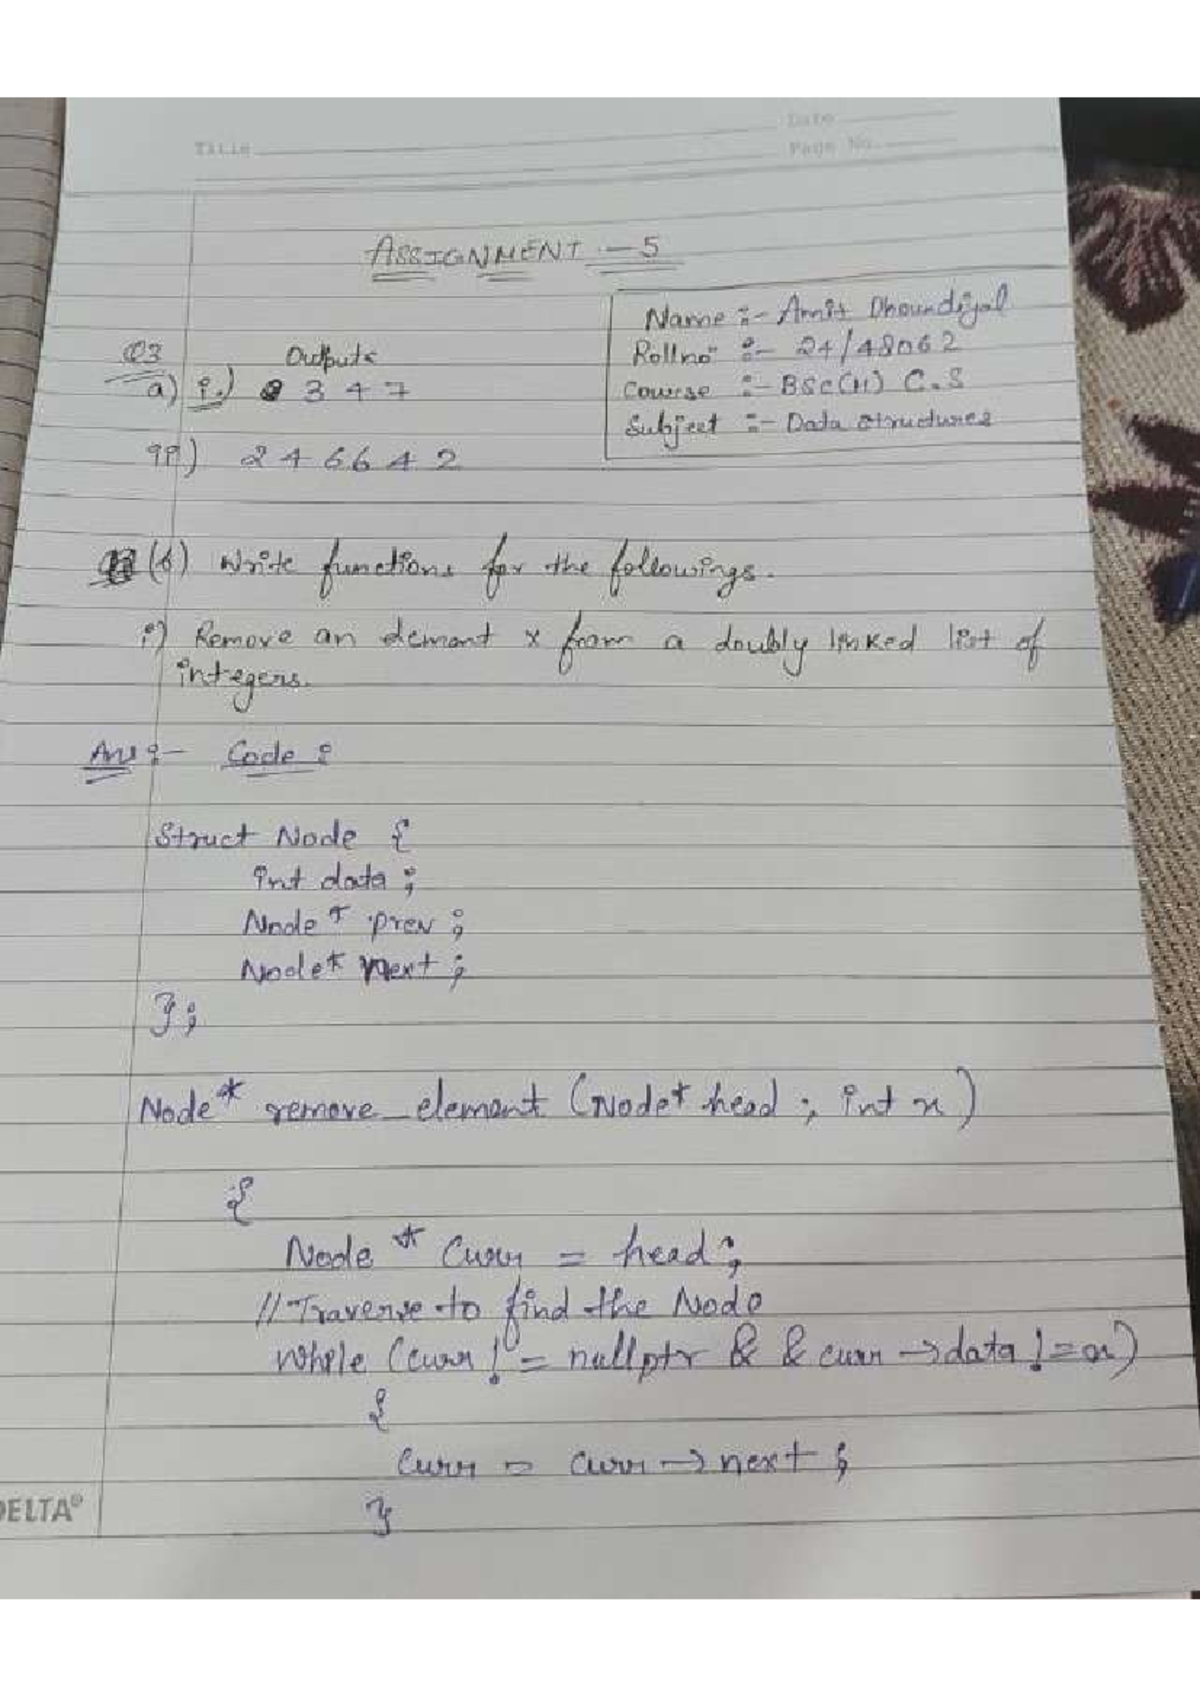 Title
Date
Page No.
ASSIGNMENT - 5
Name :- Amit Dhoundiyal
Rollno :- 24/48062
Course :- BSc(H) C.S
Subject :- Data structures
Q3 Outputs
a) i.) 3 4 7
ii) 2 4 6 6 4 2
(b) Write functions for the followings.
i) Remove an element x from a doubly linked list of
integers.
Ans :- Code :
Struct Node {
int data ;
Node* prev ;
Node* next ;
};
Node* remove_element (Node* head ; int x)
{
Node * curr = head ;
// Traverse to find the Node
while (curr != nullptr & & curr → data != x)
{
curr = curr → next ;
}
DELTA®